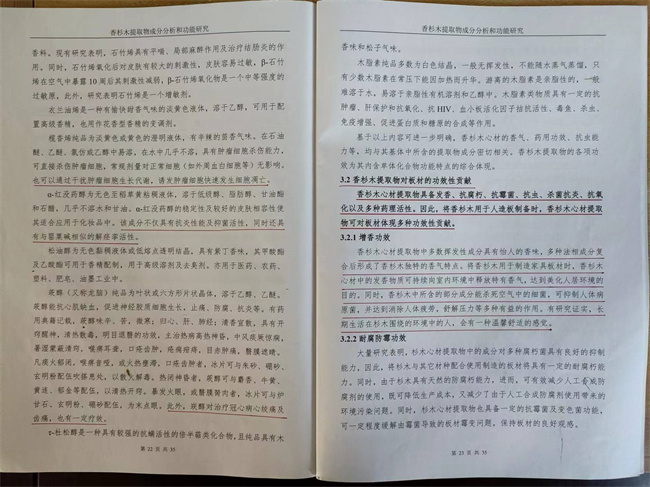 香杉木提取物成分分析和功能研究
香料。现有研究表明，石竹烯具有平喘、局部麻醉作用及治疗结肠炎的作
用。同时，石竹烯氧化后对皮肤有较大的刺激性，皮肤容易过敏，β-石竹
烯在空气中暴露 10 周后其刺激性减弱，β-石竹烯氧化物是一个中等强度的
过敏原，此外，研究表明石竹烯是一个增敏剂。
衣兰油烯是一种有愉快甜香气味的淡黄色液体，溶于乙醇，可用于配
置高级香精，也用作花香型香精的变调剂。
榄香烯纯品为淡黄色或黄色的澄明液体，有辛辣的茴香气味。在石油
醚、乙醚、氯仿或乙醇中易溶，在水中几乎不溶，具有肿瘤细胞杀伤能力，
可直接杀伤肿瘤细胞，常规剂量对正常细胞（如外周血白细胞等）无影响，
也可以通过干扰肿瘤细胞生长代谢，诱发肿瘤细胞快速发生细胞凋亡。
α-红没药醇为无色至稻草黄粘稠液体，溶于低级醇、脂肪醇、甘油酯
和石蜡，几乎不溶水和甘油。α-红没药醇的稳定性及较好的皮肤相容性使
其适合应用于化妆品中。该成分不仅具有抗炎性能及抑菌活性，同时还具
有与罂粟碱相似的解痉挛活性。
松油醇为无色黏稠液体或低熔点透明结晶。具有紫丁香味，其甲酸酯
及乙酸酯可用于香精配制，用于高级溶剂及去臭剂。亦用于医药、农药、
塑料、肥皂、油墨工业中。
莰醇（又称龙脑）纯品为叶状或六方形片状晶体，溶于乙醇、乙醚。
莰醇能抗心肌缺血，促进神经胶质细胞生长，止痛、防腐、抗炎等。有药
用典籍记载，莰醇味辛、苦，微寒；归心、肝、肺经；清香宣散，具有开
窍醒神，清热散毒，明目退翳的功效，主治热病高热神昏，中风痰厥惊痫，
暑湿蒙蔽清窍，喉痹耳聋，口疮齿肿，疮痈疳痔，目赤肿痛，翳膜遮睛，
凡痰火郁闭，喉痹音哑，或火热壅滞，口疮齿肿者，冰片可与朱砂、硼砂、
玄明粉配伍吹搽患处，以散火解毒。热闭神昏者，莰醇可与麝香、牛黄、
黄连、郁金等配伍，以清热开窍。暴发火眼，或翳膜胬肉者，冰片可与炉
甘石、玄明粉、硼砂配伍，为末点眼。此外，莰醇对治疗冠心病心绞痛及
齿痛，也有一定疗效。
τ-杜松醇是一种具有较强的抗螨活性的倍半萜类化合物，且纯品具有木
第 22 页 共 35
香杉木提取物成分分析和功能研究
香味和松子气味。
木脂素纯品多数为白色结晶，一般无挥发性，不能随水蒸气蒸馏，只
有少数木脂素在常压下能因加热而升华。游离的木脂素是亲脂性的，一般
难溶于水，易溶于亲脂性有机溶剂和乙醇中。木脂素类物质具有一定的抗
肿瘤、肝保护和抗氧化、抗 HIV、血小板活化因子拮抗活性、毒鱼、杀虫、
免疫增强、促进蛋白质和糖原的合成等作用。
基于以上内容可进一步明确，香杉木心材的香气、药用功效、抗虫能
力等，均与其基体中所含的提取物成分密切相关。香杉木提取物的各项功
效为其内含单体化合物功能特点的综合体现。
3.2 香杉木提取物对板材的功效性贡献
香杉木心材提取物具备发香、抗腐朽、抗霉菌、抗虫、杀菌抗炎、抗氧
化以及多种药理活性。因此，将香杉木用于人造板制备时，香杉木心材提取
物可对板材体现多种功效性贡献。
3.2.1 增香功效
香杉木心材提取物中多数挥发性成分具有怡人的香味，多种法相成分复
合后形成了香杉木独特的香气特点。将香杉木用于制造家具板材时，香杉木
心材中的发香物质可持续向室内环境中释放特有香气，达到美化人居环境的
目的。同时，香杉木中所含的部分成分能杀死空气中的细菌，可抑制人体病
原菌，并达到消除人体疲劳，舒解压力等多种有益的作用。有研究证实，长
期生活在杉木围绕的环境中的人，会有一种温馨舒适的感觉。
3.2.2 耐腐防霉功效
大量研究表明，杉木心材提取物中的成分对多种腐朽菌具有良好的抑制
能力，因此，将杉木与其它树种配合使用制造的板材将具有一定的耐腐朽能
力。同时，由于杉木具有天然的防腐朽能力，进而，可有效减少人工合成防
腐剂的使用，既可降低生产成本，又减少了由于人工合成防腐剂使用带来的
环境污染问题。同时，杉木心材提取物也具备一定的抗霉菌及变色菌功能，
可一定程度缓解由霉菌导致的板材霉变问题，保持板材的良好观感。
第 23 页 共 35